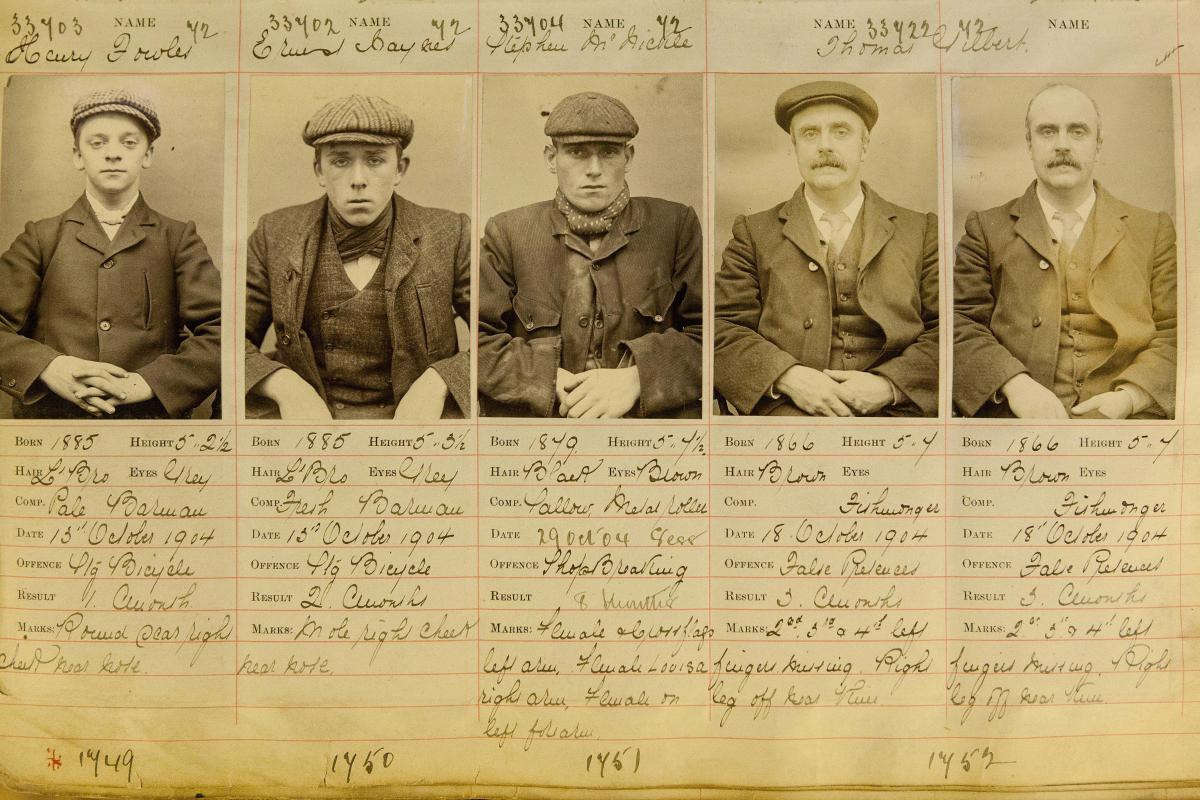 33703 NAME 72
Henry Fowles
33702 NAME 72
Ernest Haynes
33704 NAME 72
Stephen McNickle
NAME 33722 72
Thomas Gilbert.
NAME
BORN 1885 HEIGHT 5"2½
HAIR Lt Bro EYES Grey
COMP. Pale Barman
DATE 13th October 1904
OFFENCE Stg Bicycle
RESULT 1. Cmonth.
MARKS: Round scar right
cheek near nose.
* 1749
BORN 1885 HEIGHT 5"3½
HAIR Lt Bro EYES Grey
COMP. Fresh Barman
DATE 13th October 1904
OFFENCE Stg Bicycle
RESULT 2. Cmonths
MARKS: Mole right cheek
near nose.
1750
BORN 1879. HEIGHT 5"7½
HAIR Black EYES Brown
COMP. Sallow, Metal roller
DATE 29 Oct 04 Sess
OFFENCE Shop Breaking
RESULT 8 months
MARKS: Female & Cross flags
left arm, Female Louisa
right arm, Female on
left forearm.
1751
BORN 1866 HEIGHT 5"7
HAIR Brown EYES
COMP. Fishmonger
DATE 18. October 1904
OFFENCE False Pretences
RESULT 3. Cmonths
MARKS: 2nd 3rd & 4th left
fingers missing. Right
leg off near knee
BORN 1866 HEIGHT 5"7
HAIR Brown EYES
COMP. Fishmonger
DATE 18th October 1904
OFFENCE False Pretences
RESULT 3. Cmonths
MARKS: 2nd 3rd & 4th left
fingers missing. Right
leg off near knee.
1752